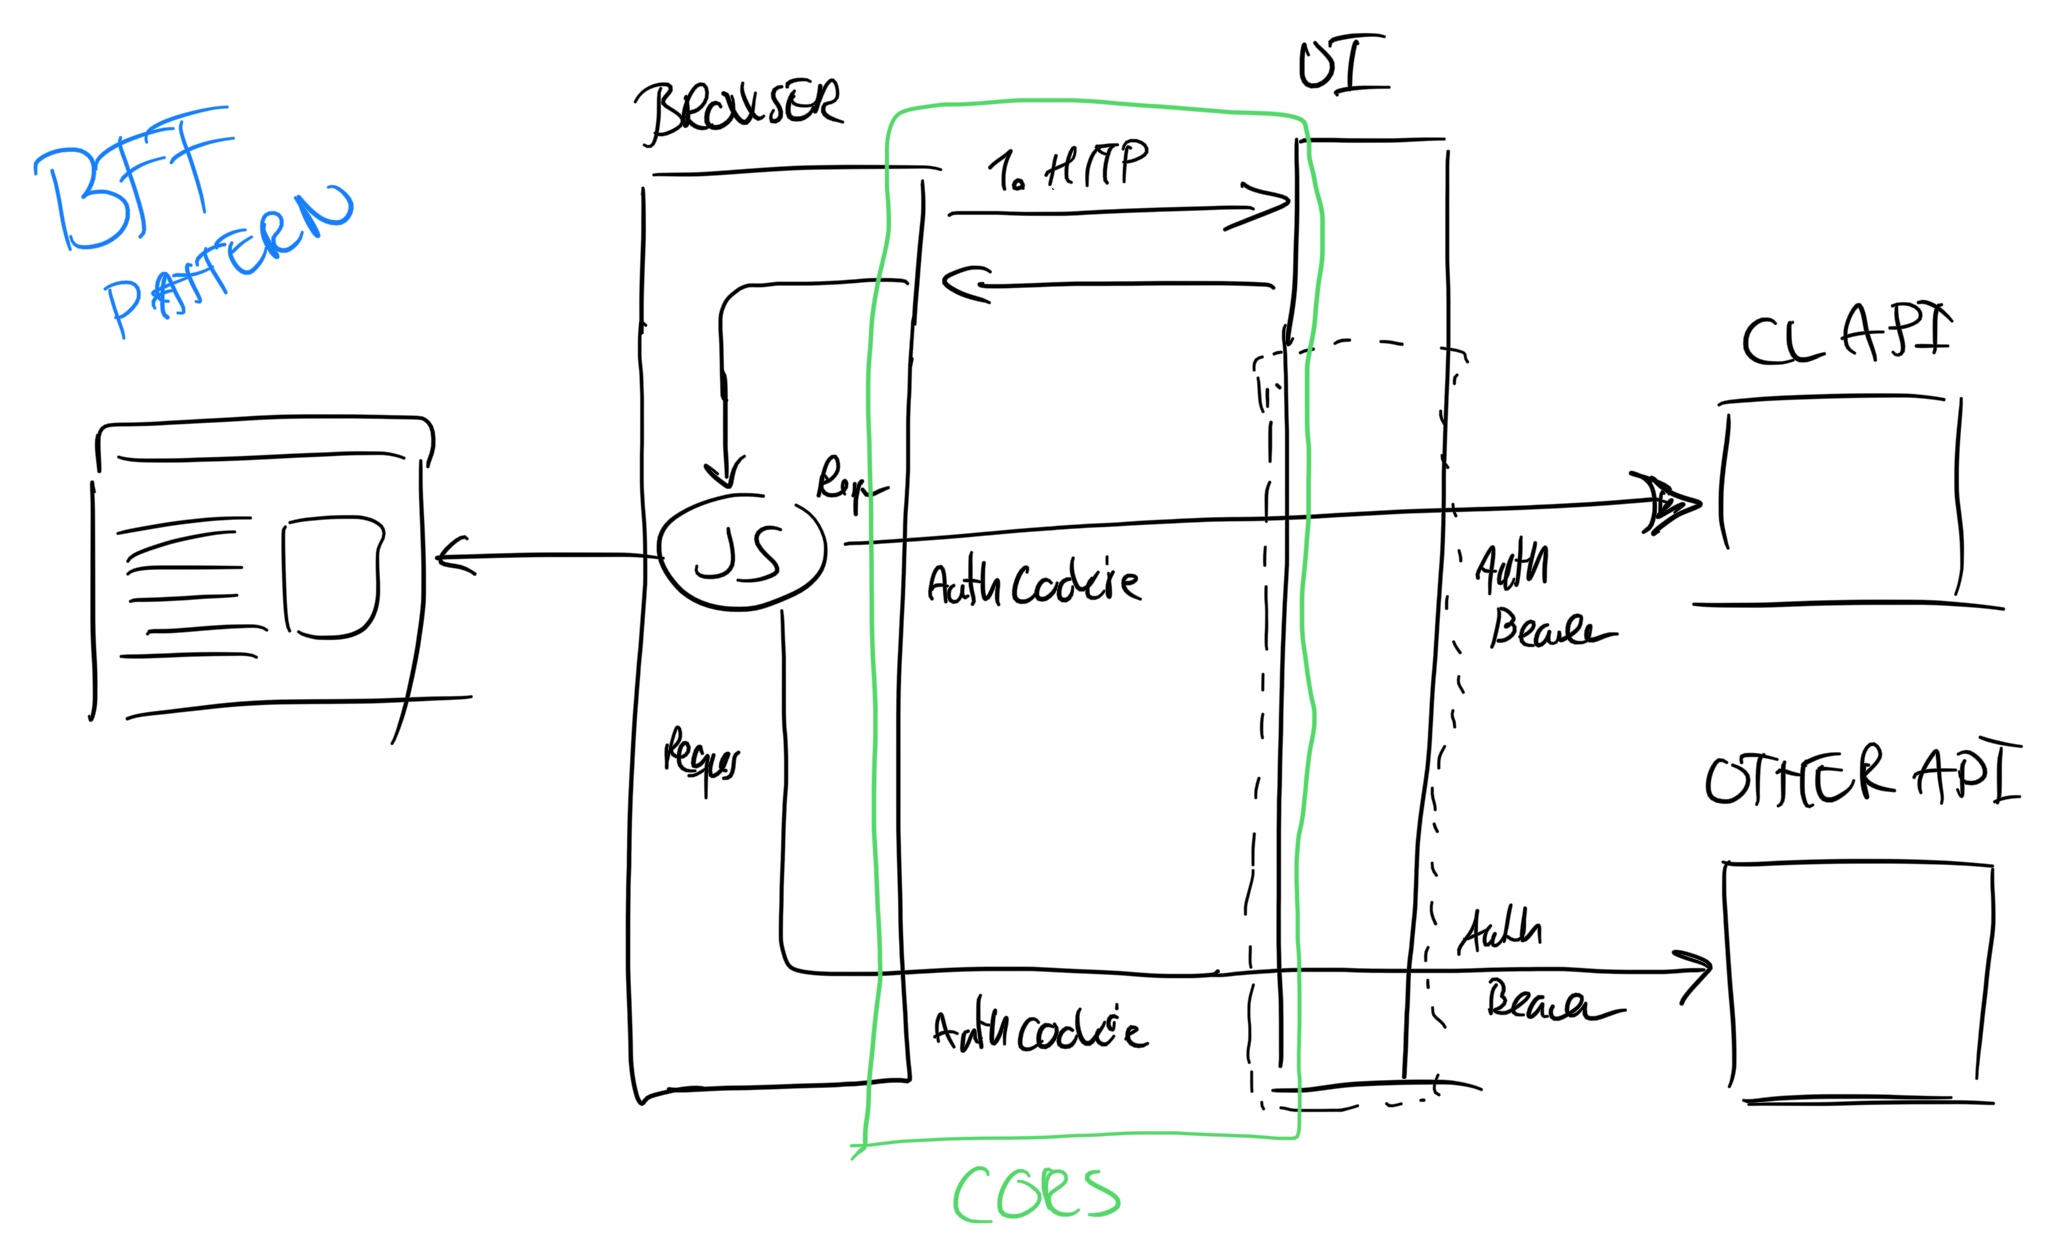 BFF
PATTERN
BROWSER
UI
1. HTTP
CL API
JS
Auth Cookie
Auth
Bearer
Reques
OTHER API
Auth
Bearer
Auth cookie
CORS